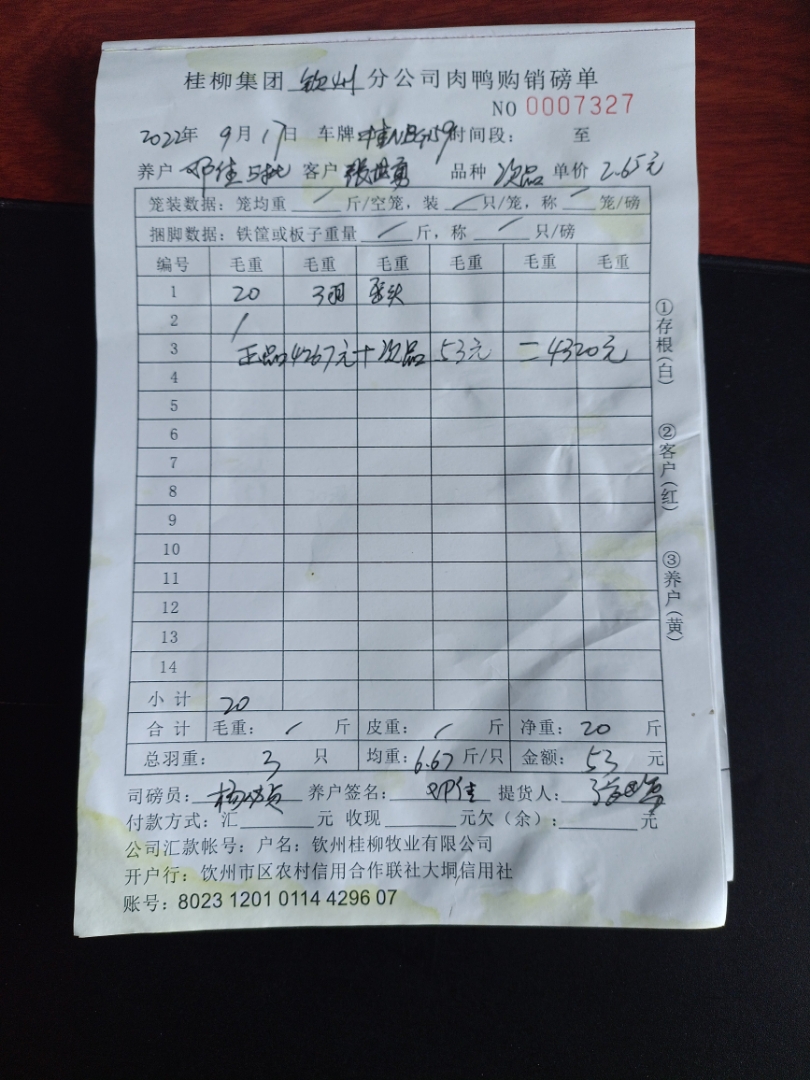 桂柳集团 钦州 分公司肉鸭购销磅单
NO 0007327
2022年 9月17日 车牌 时间段： 至
养户 邓佳5批 客户 张世勇 品种 次品 单价 2.65元
笼装数据：笼均重 / 斤/空笼，装 / 只/笼，称 / 笼/磅
捆脚数据：铁筐或板子重量 / 斤，称 / 只/磅
编号 毛重 毛重 毛重 毛重 毛重 毛重
1 20 3羽 歪头
2 /
3 正品4267元+次品53元=4320元
4
5
6
7
8
9
10
11
12
13
14
小计 20
合计 毛重： / 斤 皮重： / 斤 净重：20 斤
总羽重： 3 只 均重：6.67斤/只 金额：53 元
司磅员： 养户签名：邓佳 提货人：
付款方式：汇 元 收现 元欠（余）： 元
公司汇款帐号：户名：钦州桂柳牧业有限公司
开户行：钦州市区农村信用合作联社大垌信用社
账号：8023 1201 0114 4296 07
①存根（白）
②客户（红）
③养户（黄）